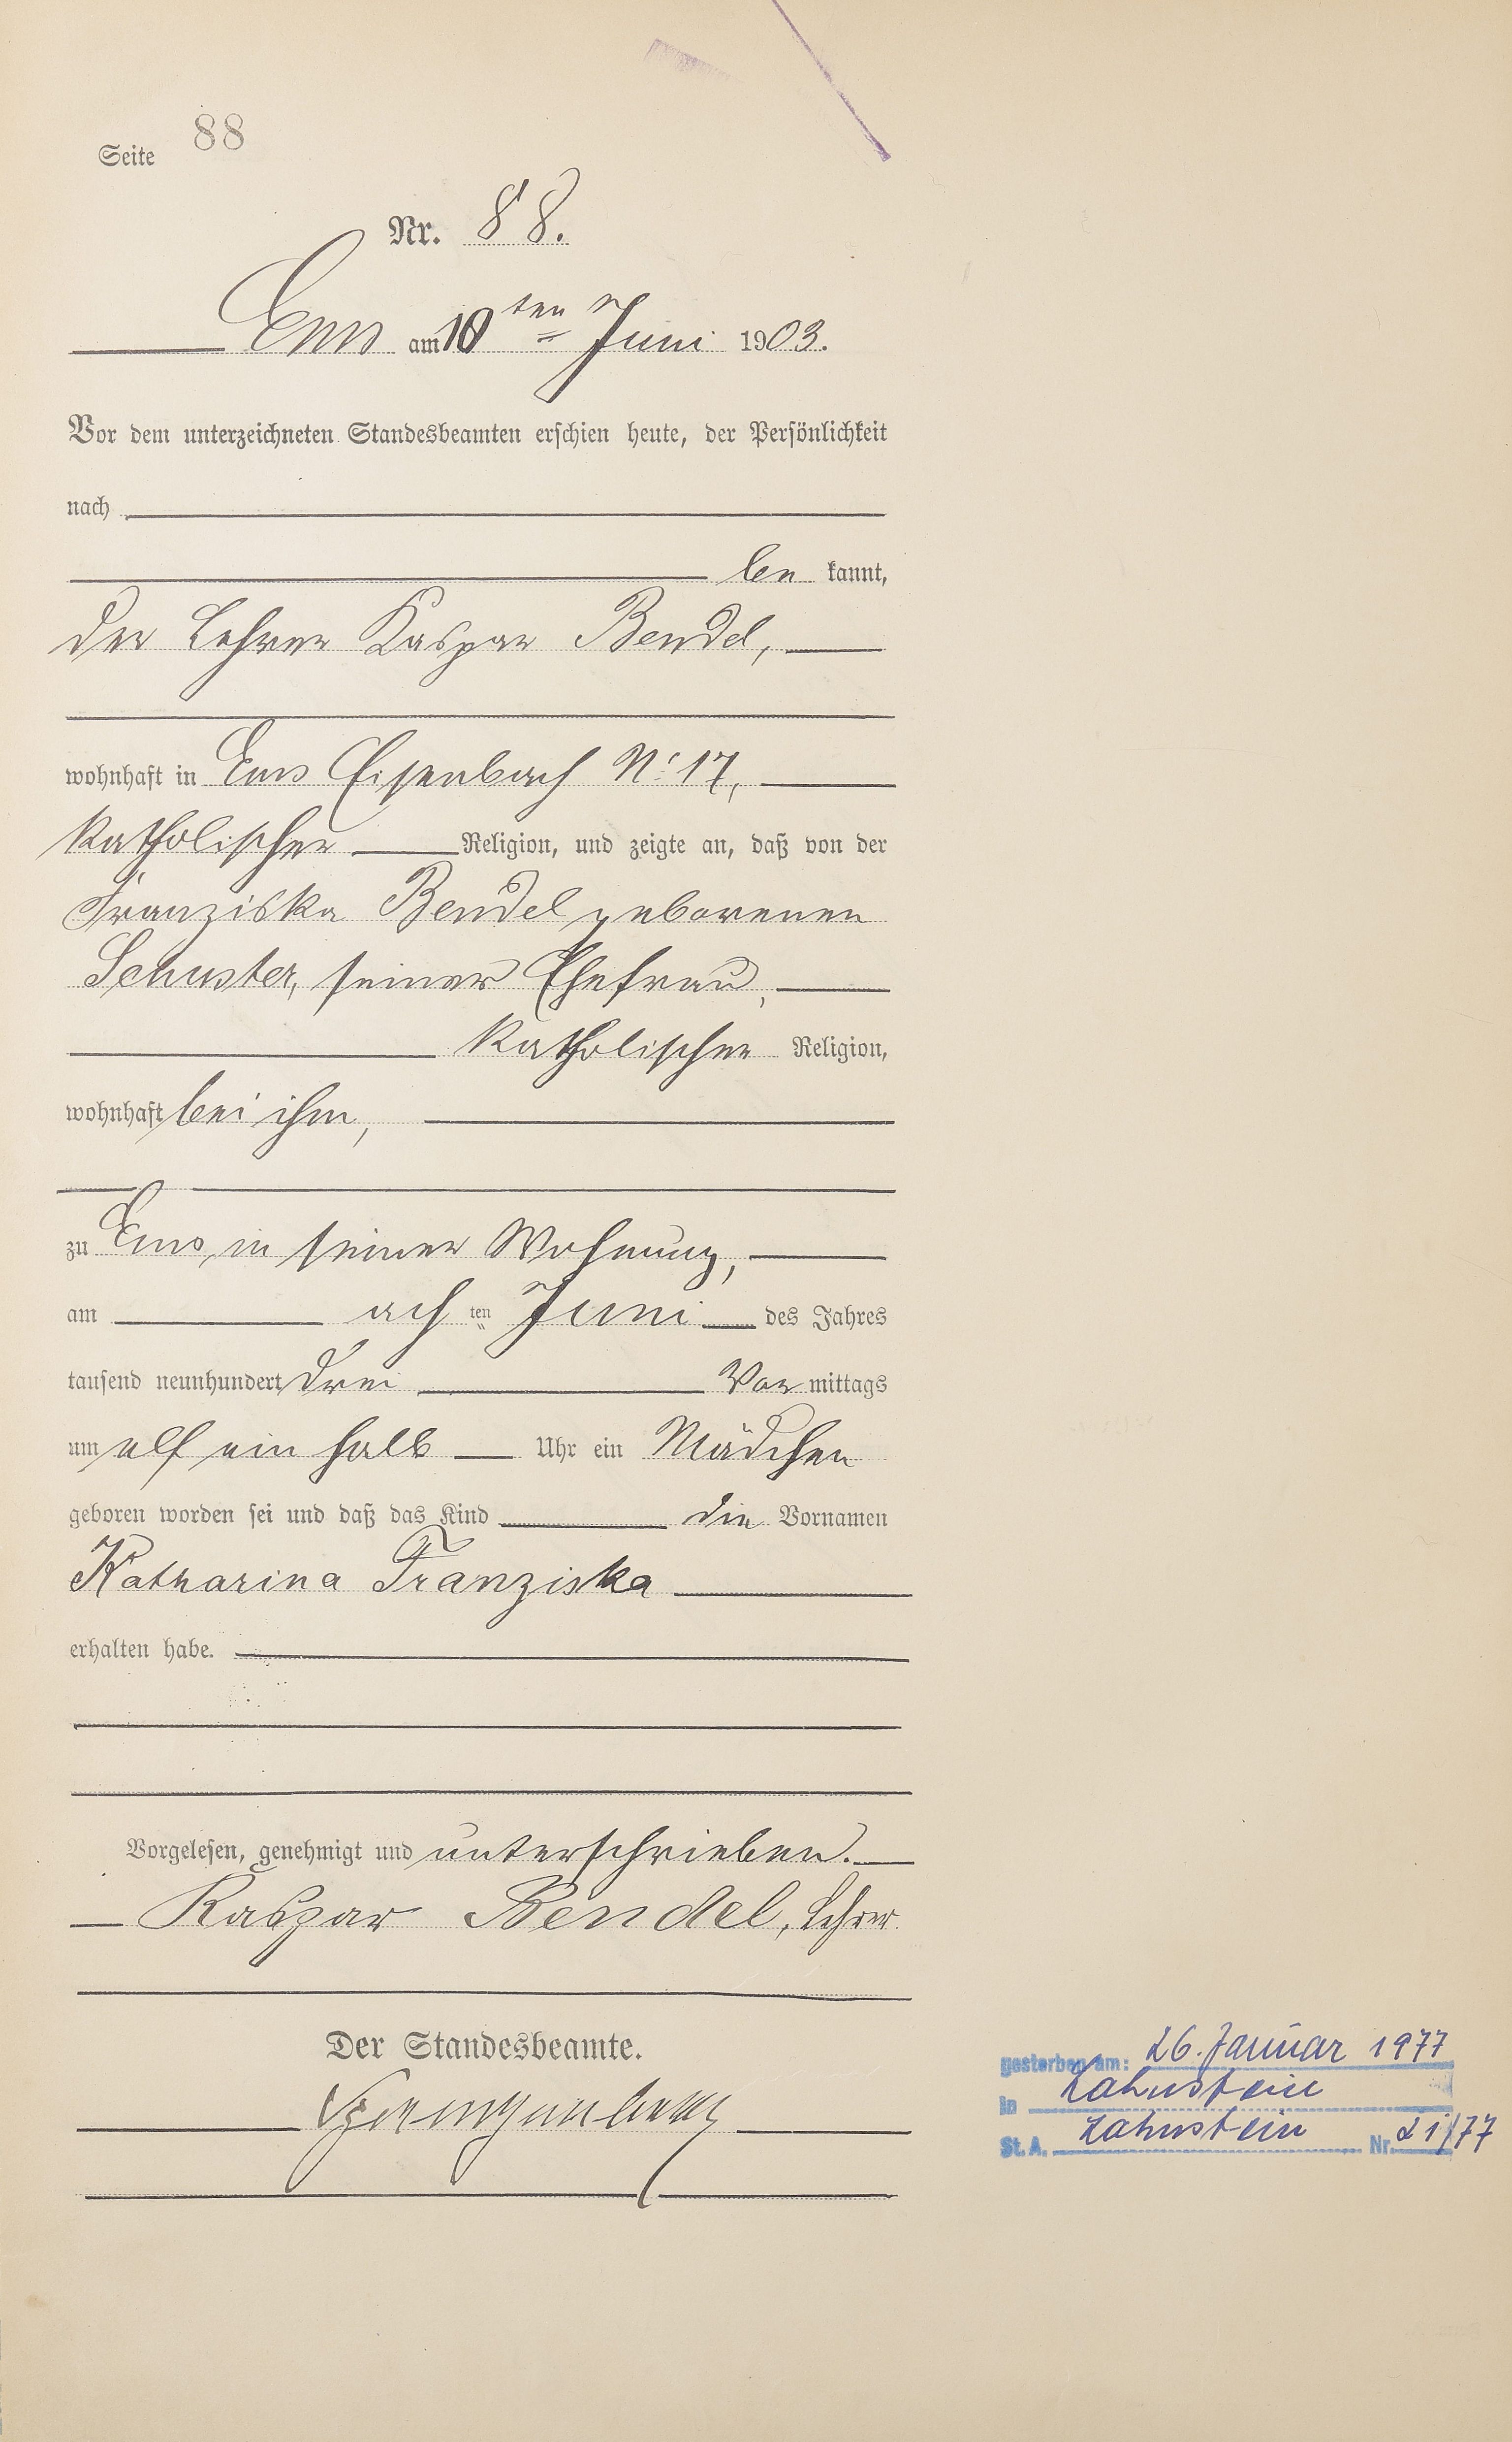 Seite 88
Nr. 88.
Ems am 10ten Juni 1903.
Vor dem unterzeichneten Standesbeamten erschien heute, der Persönlichkeit
nach
be kannt,
der Lehrer Kaspar Bendel,
wohnhaft in Ems Eisenbach No 17,
katholischer Religion, und zeigte an, daß von der
Franziska Bendel geborenen
Schuster, seiner Ehefrau,
katholischer Religion,
wohnhaft bei ihm,
zu Ems, in seiner Wohnung,
am ach ten Juni des Jahres
tausend neunhundert drei Vor mittags
um elf ein halb Uhr ein Mädchen
geboren worden sei und daß das Kind die Vornamen
Katharina Franziska
erhalten habe.
Vorgelesen, genehmigt und unterschrieben.
Kaspar Bendel, Lehrer.
Der Standesbeamte.
gestorben am: 26. Januar 1977
in Lahnstein
St. A. Lahnstein Nr. 21/77